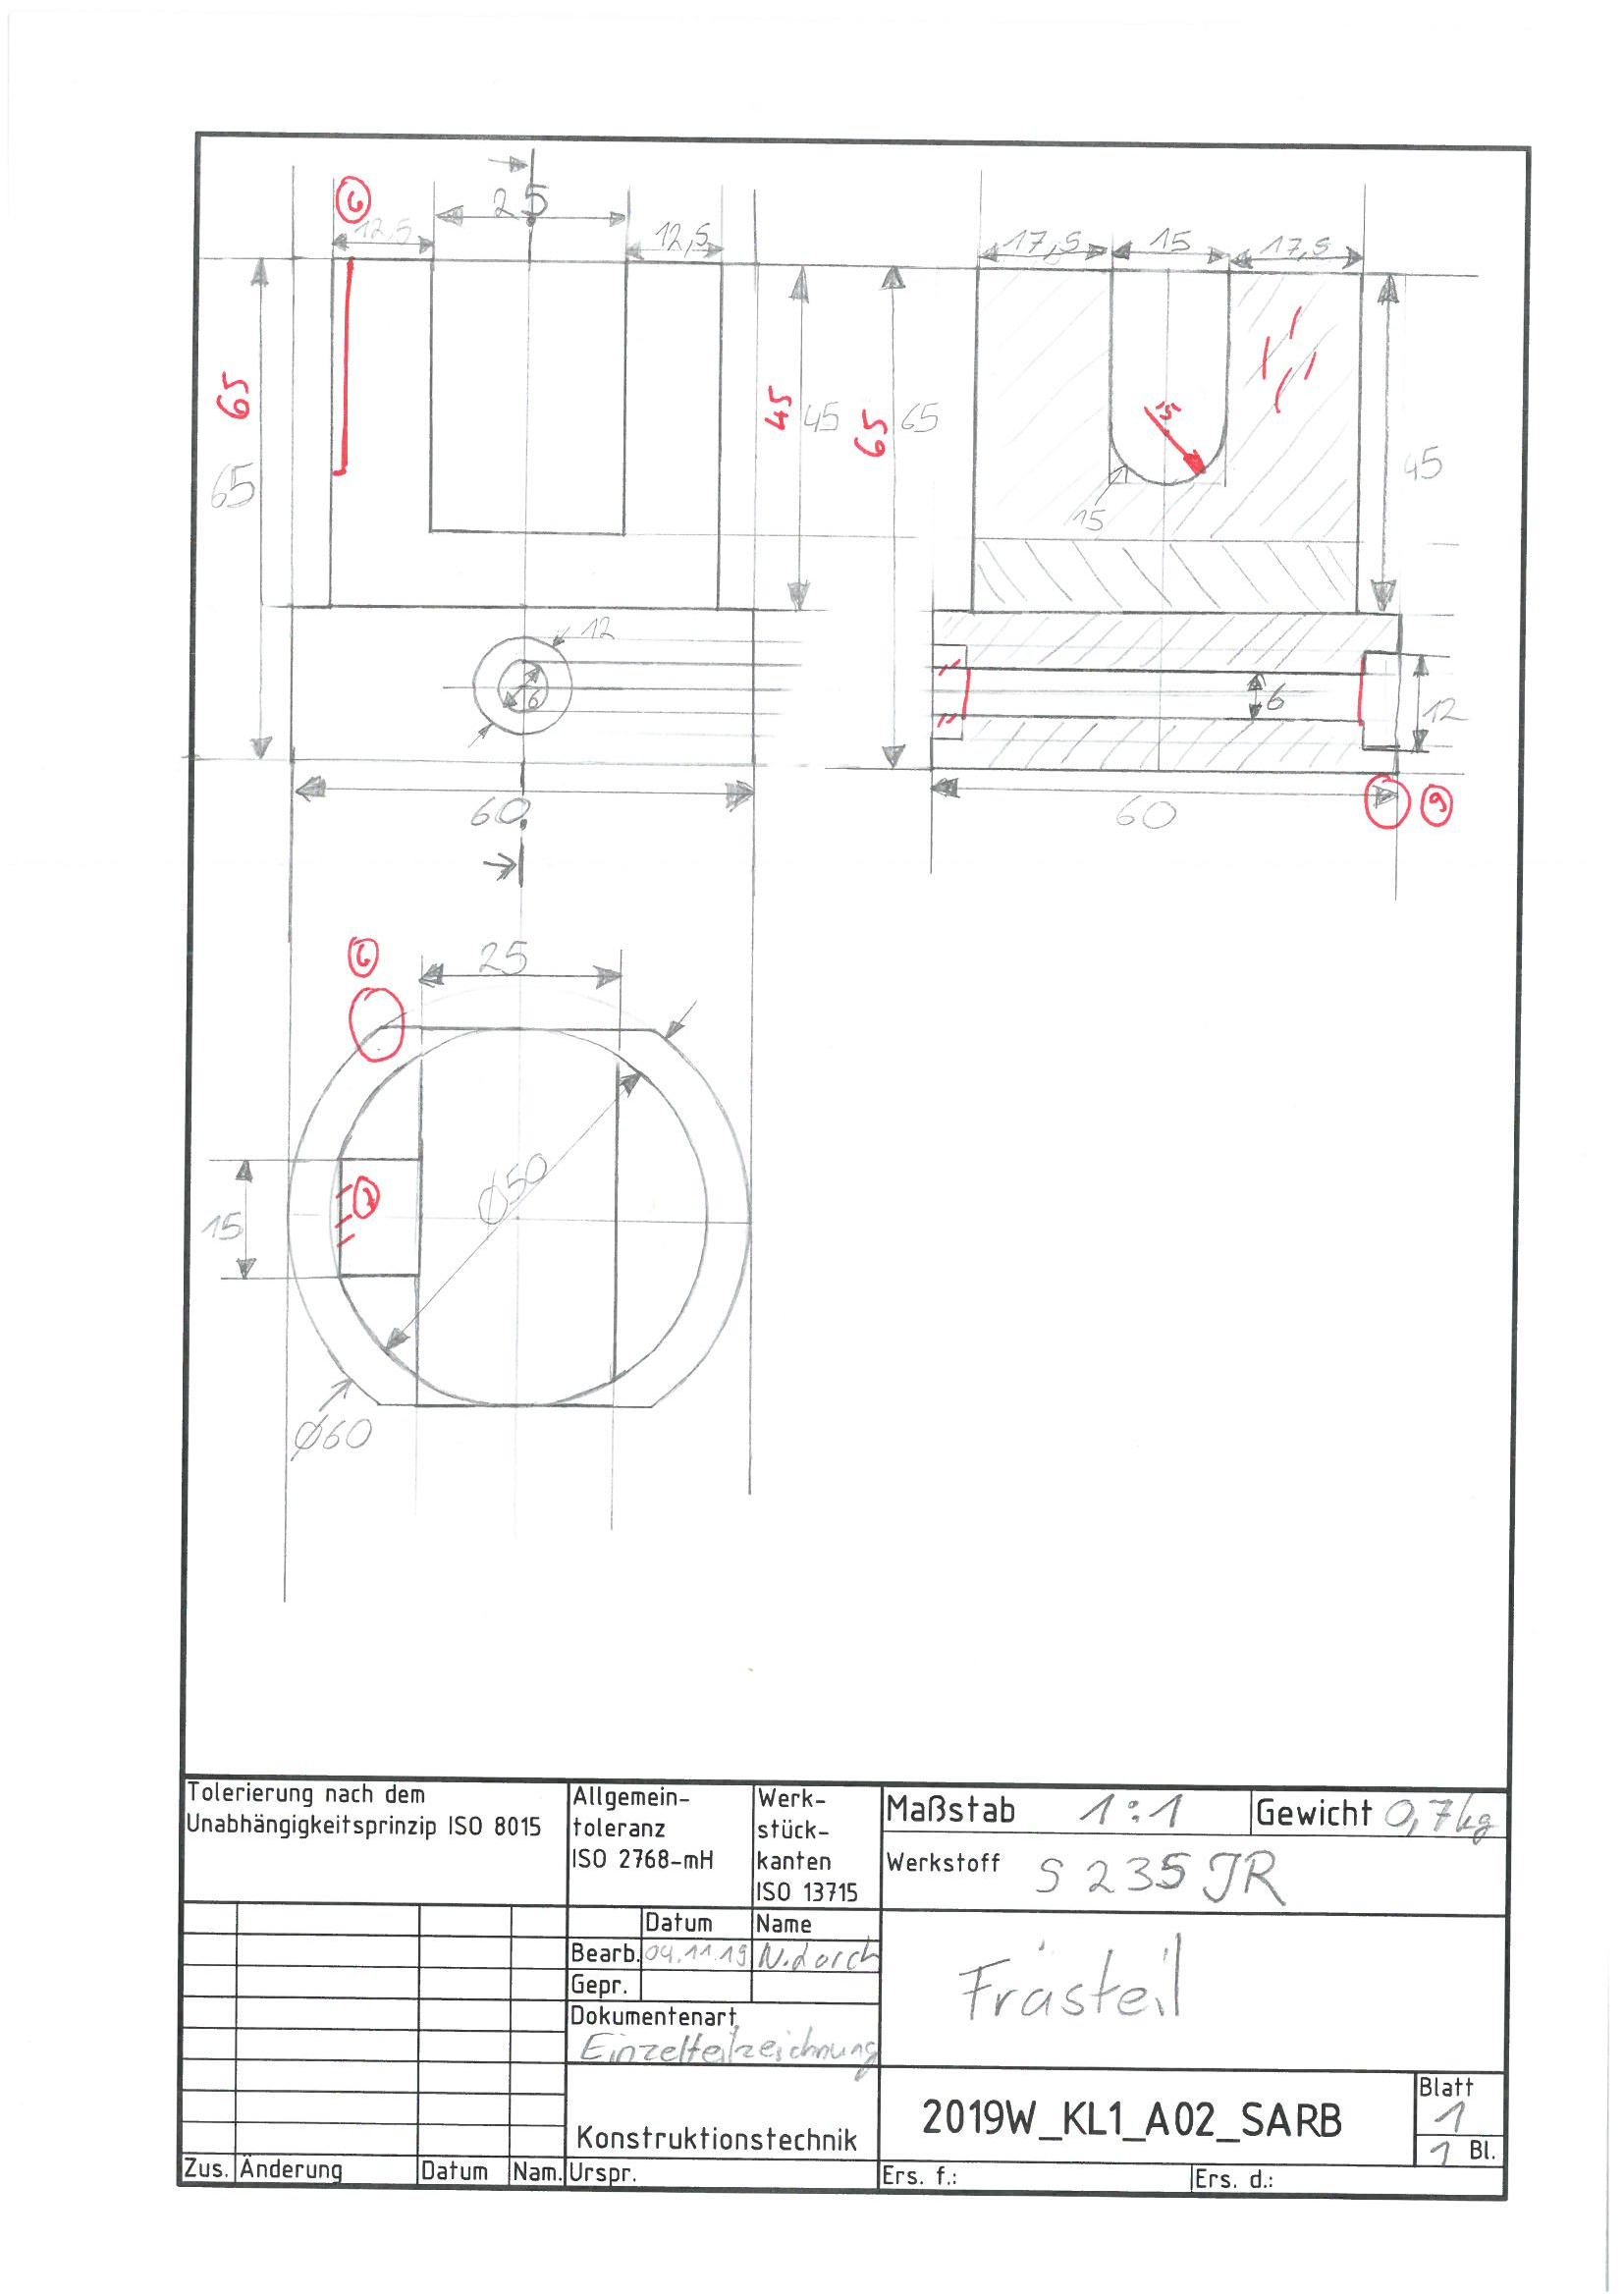 6
25
12,5
12,5
17,5
15
17,5
65
65
45
45
65
65
15
15
45
12
6
6
12
60
60
9
6
25
Ø50
15
Ø60
Tolerierung nach dem
Unabhängigkeitsprinzip ISO 8015
Allgemein-
toleranz
ISO 2768-mH
Werk-
stück-
kanten
ISO 13715
Maßstab 1:1
Gewicht 0,7kg
Werkstoff S 235 JR
Datum Name
Bearb. 04.11.19 N.Lorch
Gepr.
Dokumentenart
Einzelteilzeichnung
Frästeil
Konstruktionstechnik
2019W_KL1_A02_SARB
Blatt
1
1 Bl.
Zus. Änderung Datum Nam. Urspr. Ers. f.: Ers. d.: